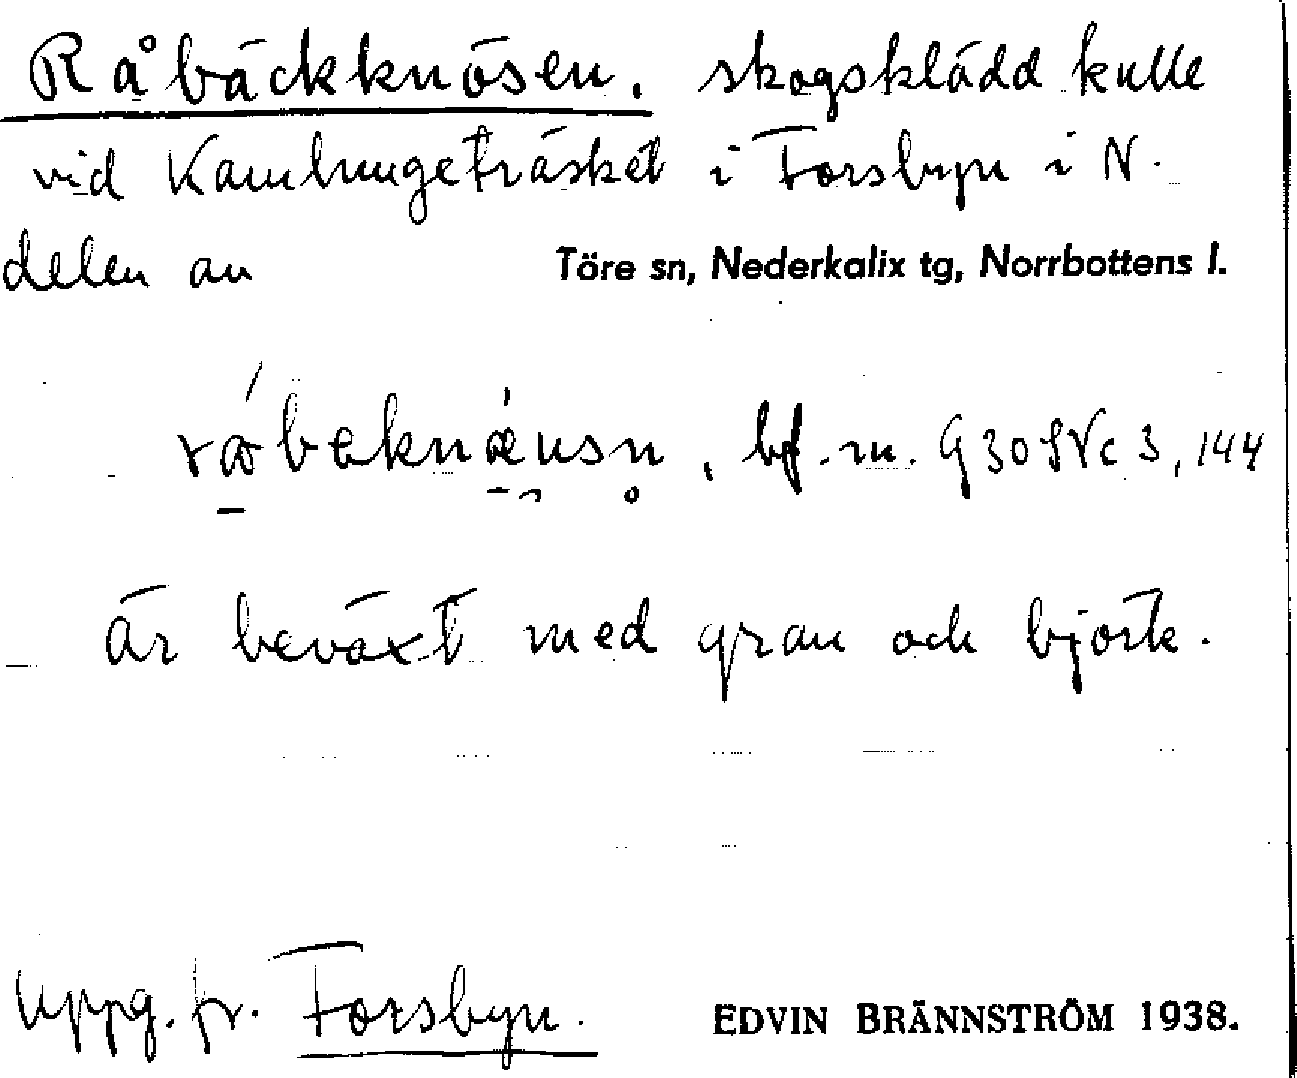 Råbäckknösen. skogsklädd kulle
vid Kamlungeträsket i Forsbyn i N.
delen av Töre sn, Nederkalix tg, Norrbottens l.
bf. m. G 30
är beväxt med gran och björk.
Uppg. fr. Forsbyn. EDVIN BRÄNNSTRÖM 1938.